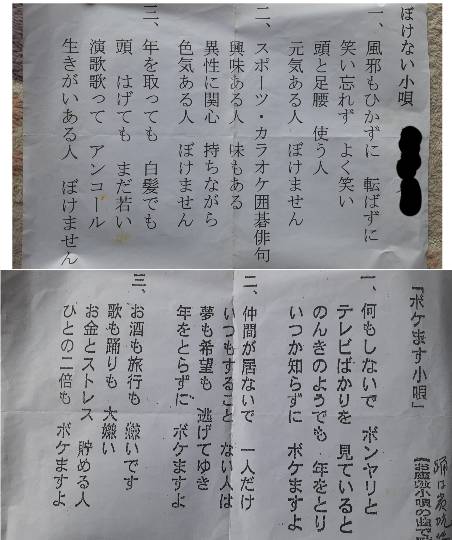 ぼけない小唄
一、風邪もひかずに 転ばずに
笑い忘れず よく笑い
頭と足腰 使う人
元気ある人 ぼけません
二、スポーツ・カラオケ囲碁俳句
興味ある人 味もある
異性に関心 持ちながら
色気ある人 ぼけません
三、年を取っても 白髪でも
頭 はげても まだ若い
演歌歌って アンコール
生きがいある人 ぼけません
「ボケます小唄」
一、何もしないで ボンヤリと
テレビばかりを 見ていると
のんきのようでも 年をとり
いつか知らずに ボケますよ
二、仲間が居ないで 一人だけ
いつもすること ない人は
夢も希望も 逃げてゆき
年をとらずに ボケますよ
三、お酒も旅行も 嫌いです
歌も踊りも 大嫌い
お金とストレス 貯める人
ひとの二倍も ボケますよ
お座敷小唄の曲で